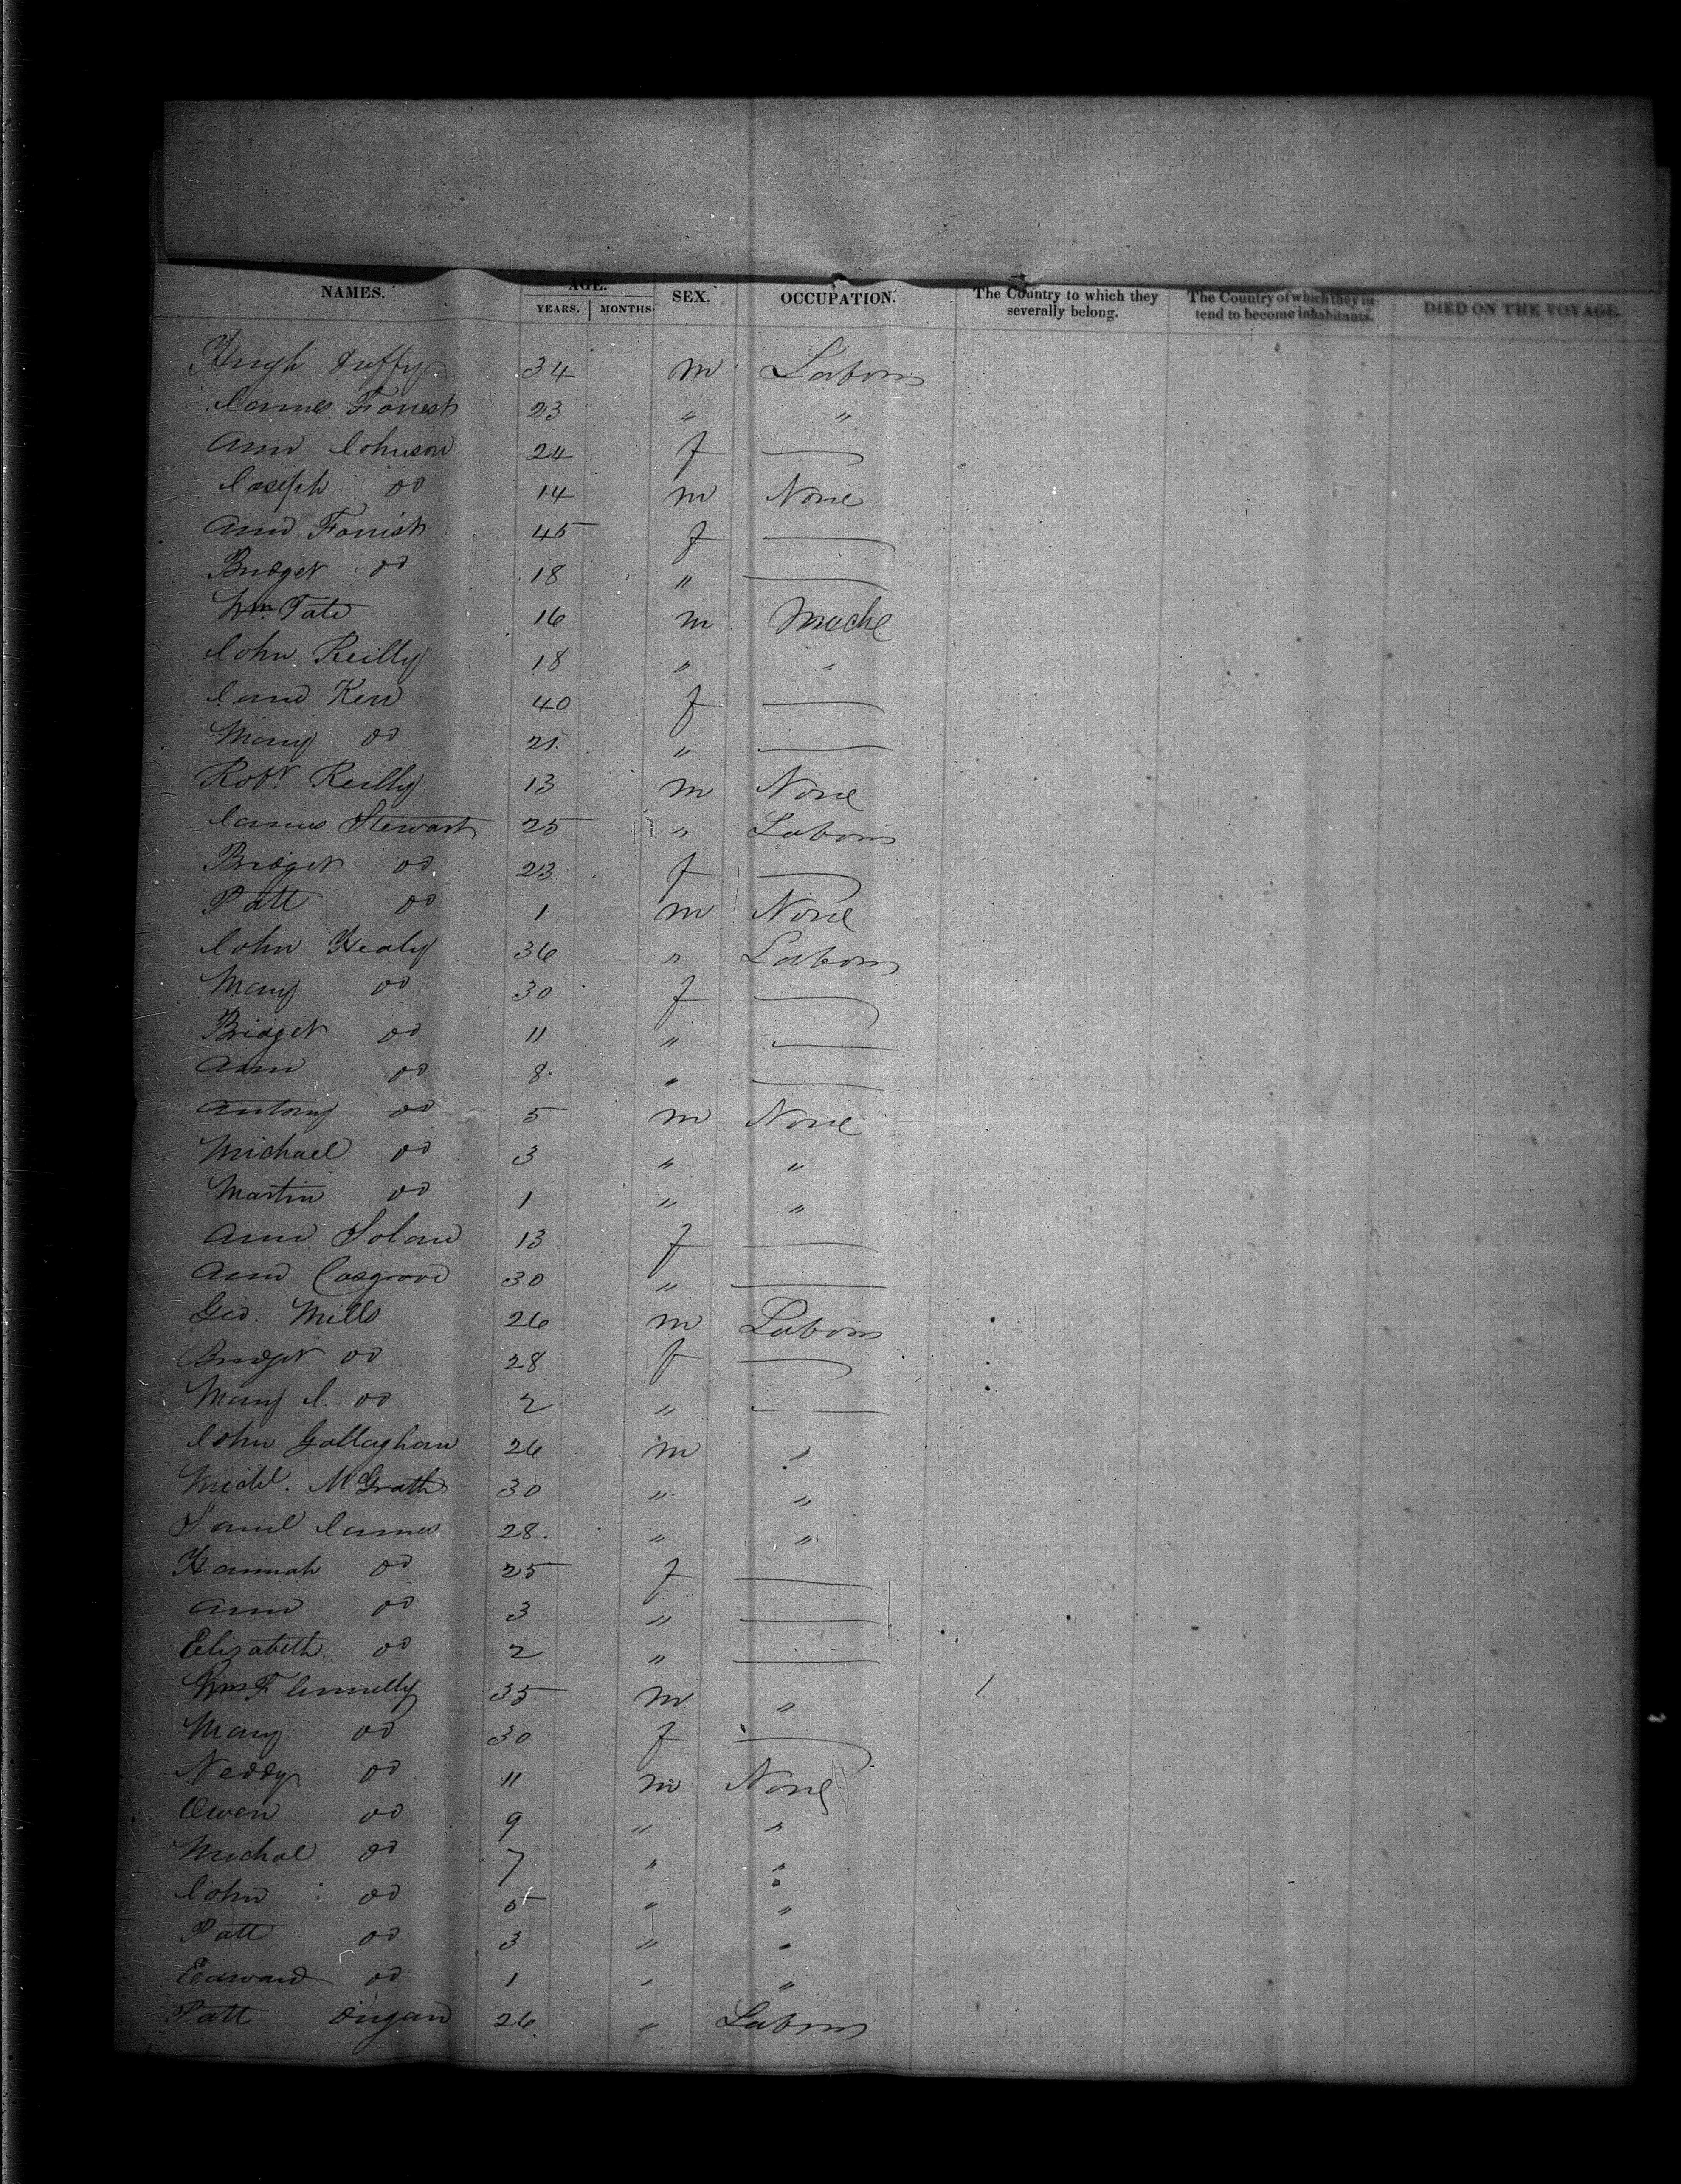 NAMES. AGE. YEARS. MONTHS. SEX. OCCUPATION. The Country to which they severally belong. The Country of which they intend to become inhabitants. DIED ON THE VOYAGE.
Hugh Duffy 34 m Laborer
James Forrest 23 " "
Ann Johnson 24 f —
Joseph do 14 m None
Ann 45 f —
Bridget do 18 " —
Wm. Tate 16 m
John Reilly 18 " "
Kerr 40 f —
Mary do 21 " —
Robt. Reilly 13 m None
James Stewart 25 " Laborer
Bridget do 23 f —
Patt do 1 m None
John Healy 36 " Laborer
Mary do 30 f —
Bridget do 11 " —
Ann do 8 " —
Antony do 5 m None
Michael do 3 " "
Martin do 1 " "
Ann Solan 13 f —
Ann Cosgrove 30 " —
Geo. Mills 26 m Laborer
Bridget do 28 f —
Mary J. do 2 " —
John Gallaghan 26 m "
Michl. McGrath 30 " "
Saml James 28 " "
Hannah do 25 f —
Ann do 3 " —
Elizabeth do 2 " —
35 m "
Mary do 30 f —
Neddy do 11 m None
Owen do 9 " "
Michal do 7 " "
John do 5 " "
Patt do 3 " "
Edward do 1 " "
Patt Dugan 26 " Laborer